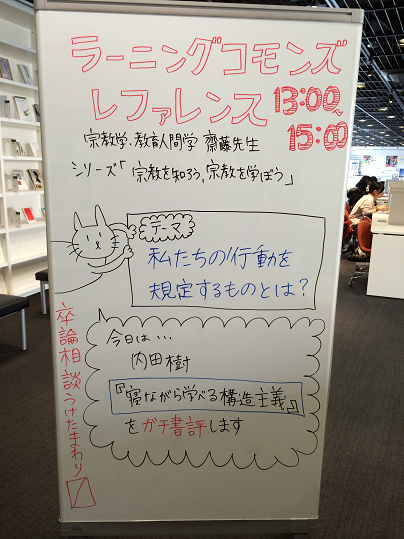 ラーニングコモンズ
レファレンス 13:00~
15:00
宗教学・教育人間学 齋藤先生
シリーズ「宗教を知ろう、宗教を学ぼう」
テーマ
私たちの行動を
規定するものとは?
今日は…
内田樹
『寝ながら学べる構造主義』
をガチ書評します
卒論相談うけたまわり〼